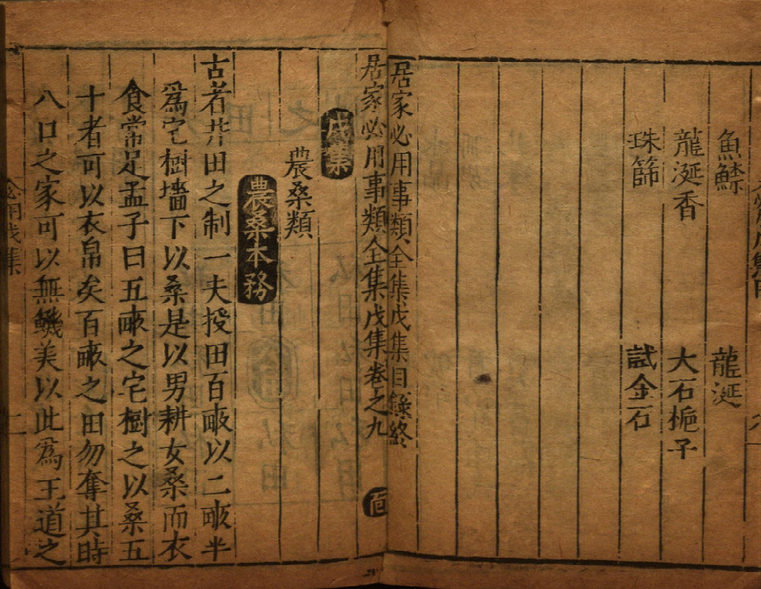 魚鰾
龍涎
龍涎香
大石梔子
珠篩
試金石
居家必用事類全集戊集目錄終
居家必用事類全集戊集卷之九
戊集
農桑類
農桑本務
古者井田之制一夫授田百畞以二畞半
爲宅樹墻下以桑是以男耕女桑而衣
食常足孟子曰五畞之宅樹之以桑五
十者可以衣帛矣百畞之田勿奪其時
八口之家可以無饑美以此爲王道之
必用戊集